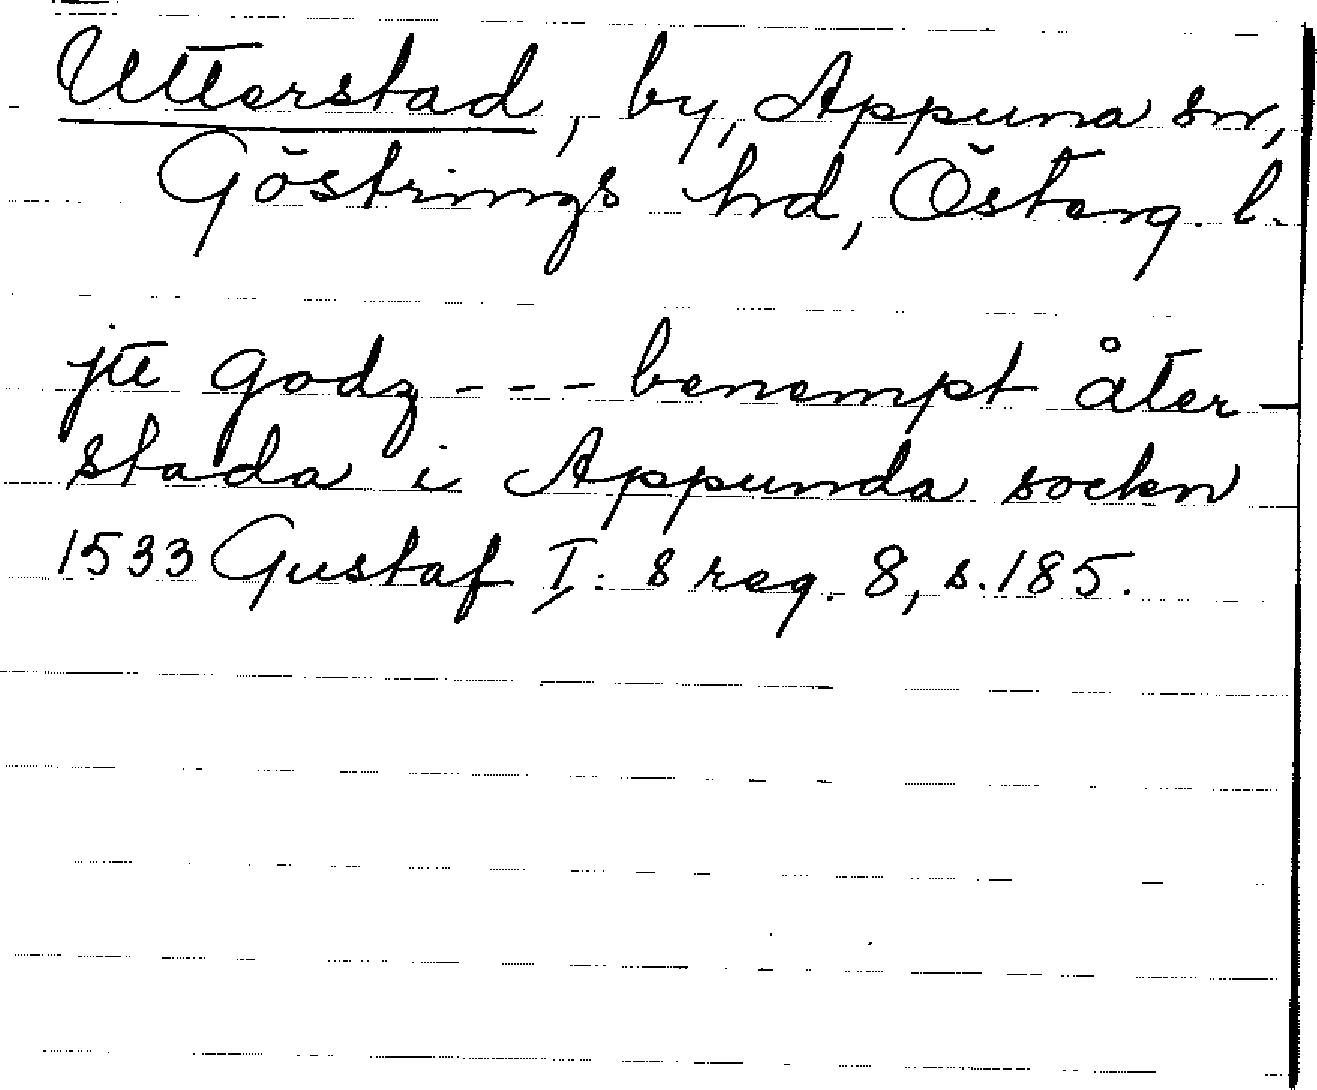 Utterstad, by, Appuna sn,
Göstrings hrd, Österg. l.
jtt godz --- benempt åter-
stada i Appunda sockn
1533 Gustaf I: s reg. 8, s. 185.